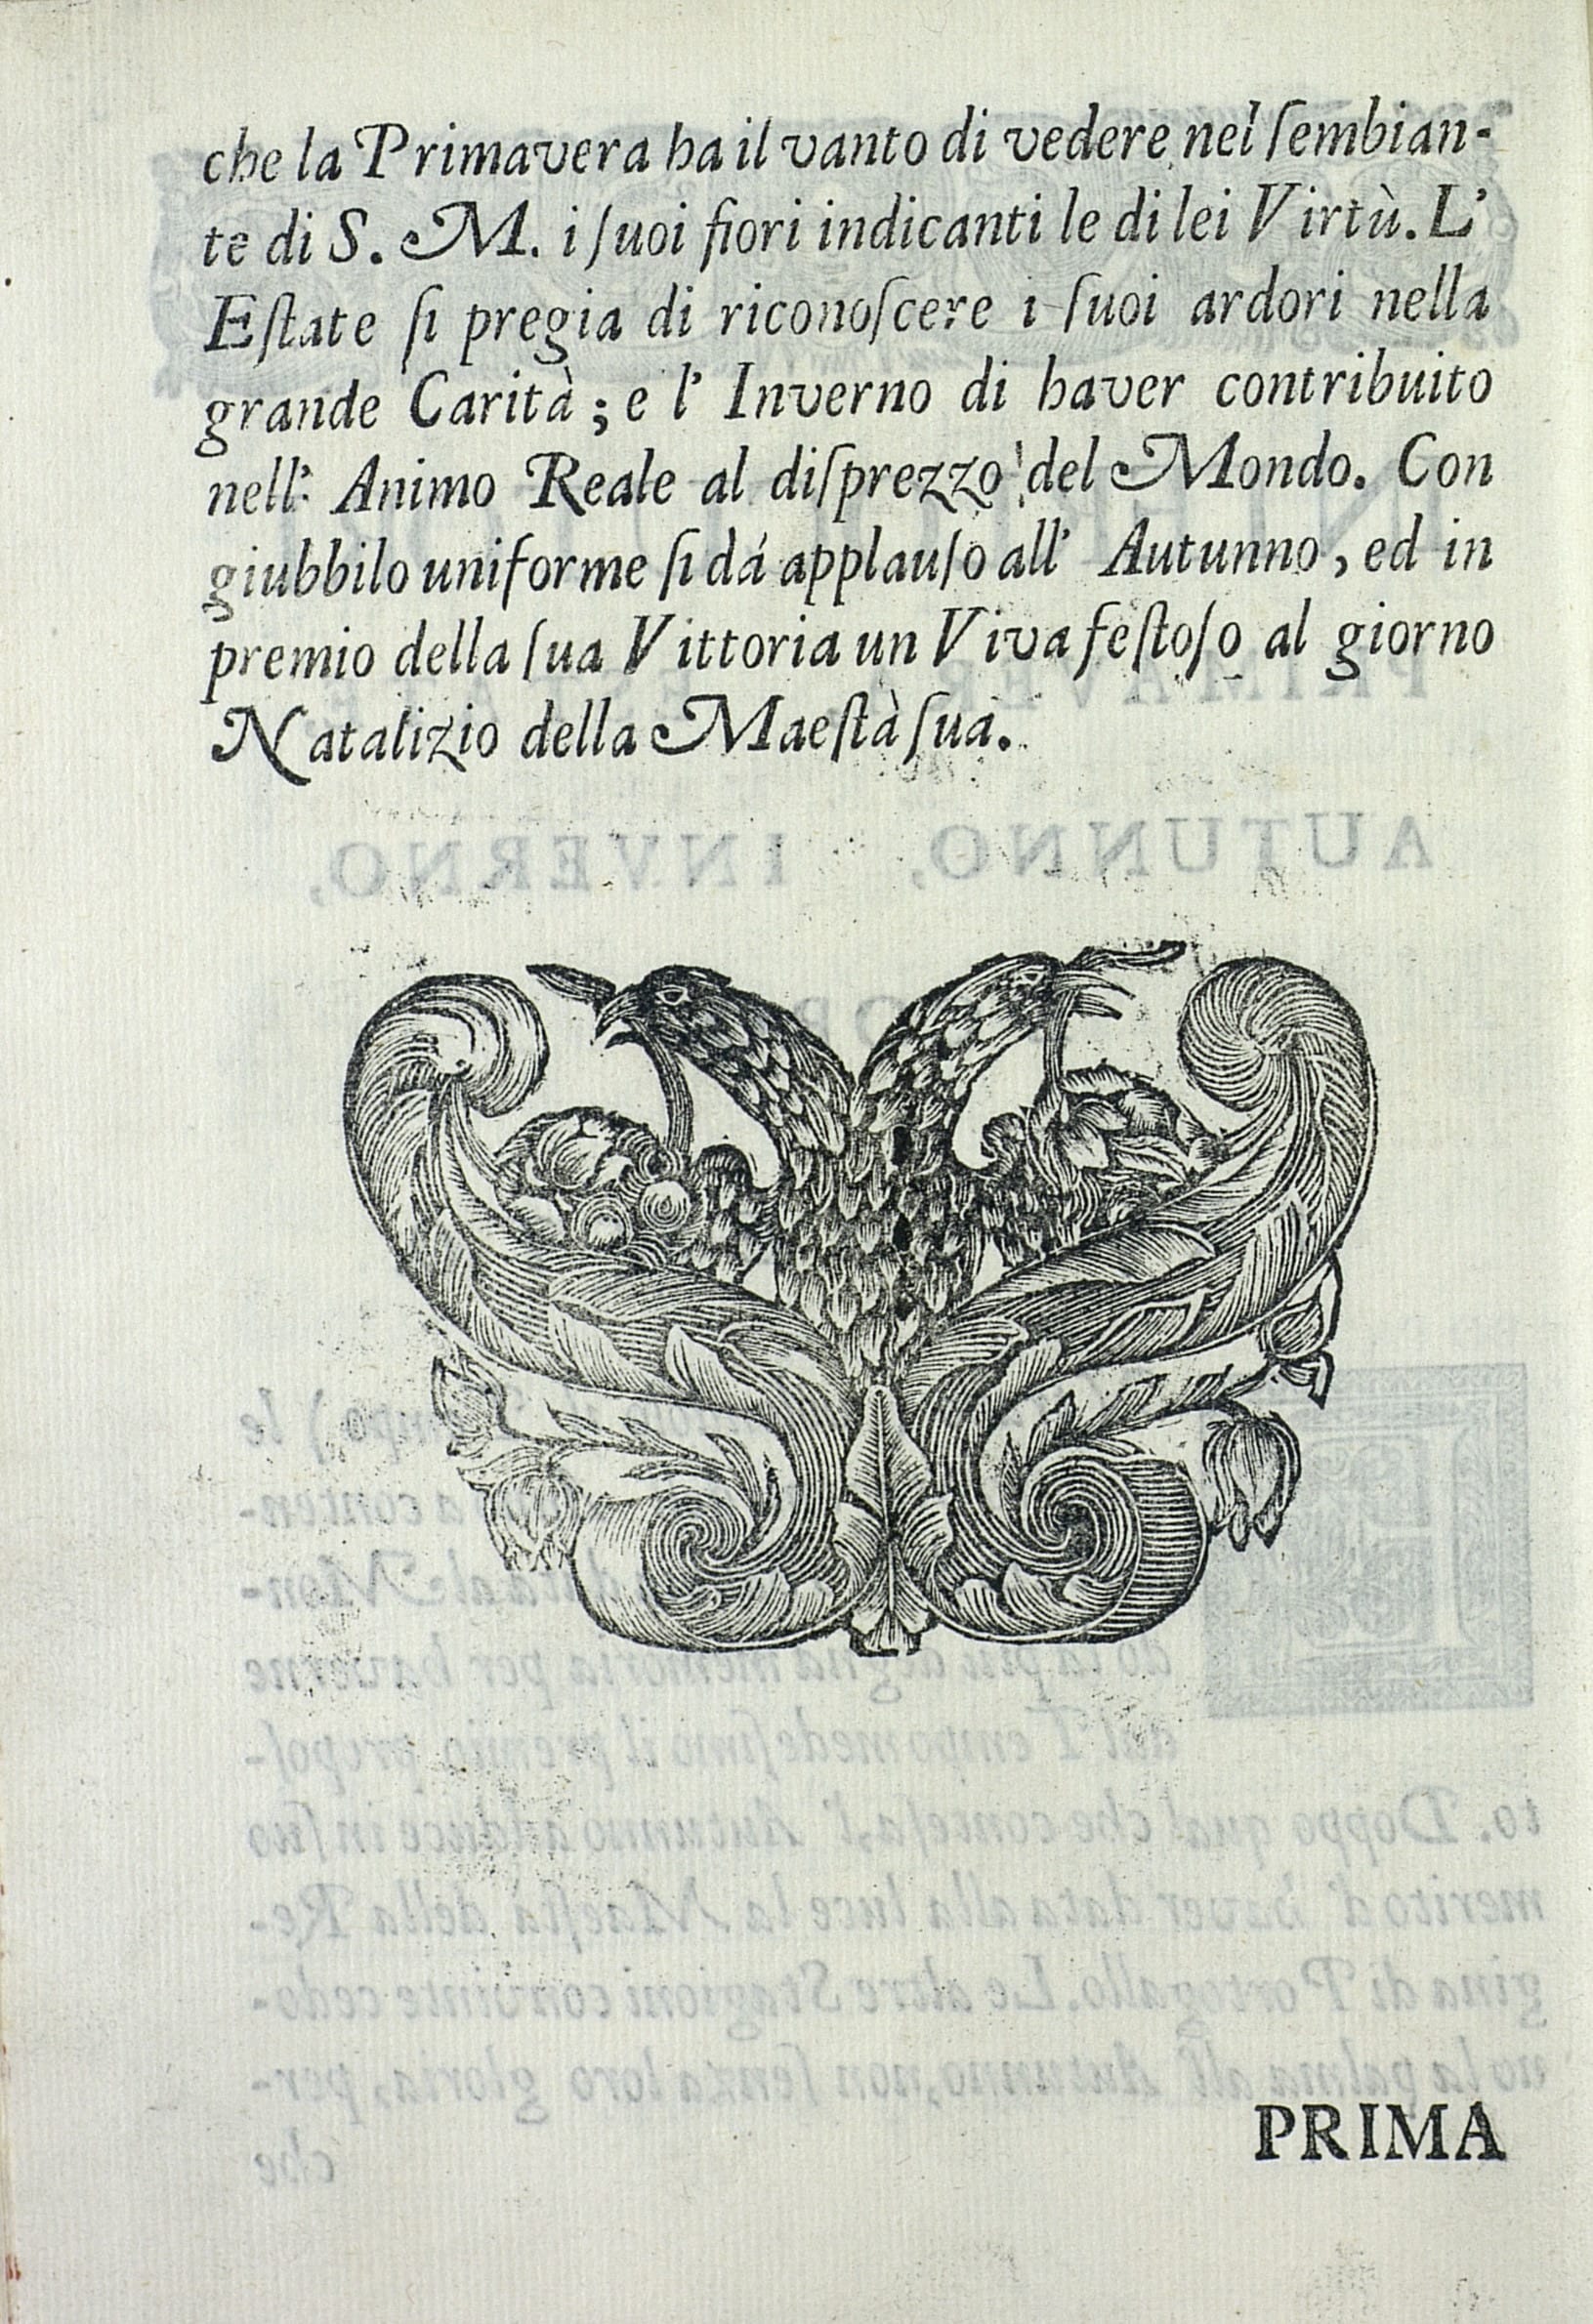 che la Primavera ha il vanto di vedere nel ſembian-
te di S. M. i ſuoi fiori indicanti le di lei Virtù. L'
Eſtate ſi pregia di riconoſcere i ſuoi ardori nella
grande Carità; e l' Inverno di haver contribuito
nell' Animo Reale al diſprezzo del Mondo. Con
giubbilo uniforme ſi dá applauſo all' Autunno, ed in
premio della ſua Vittoria un Viva feſtoſo al giorno
Natalizio della Maeſtà ſua.
PRIMA